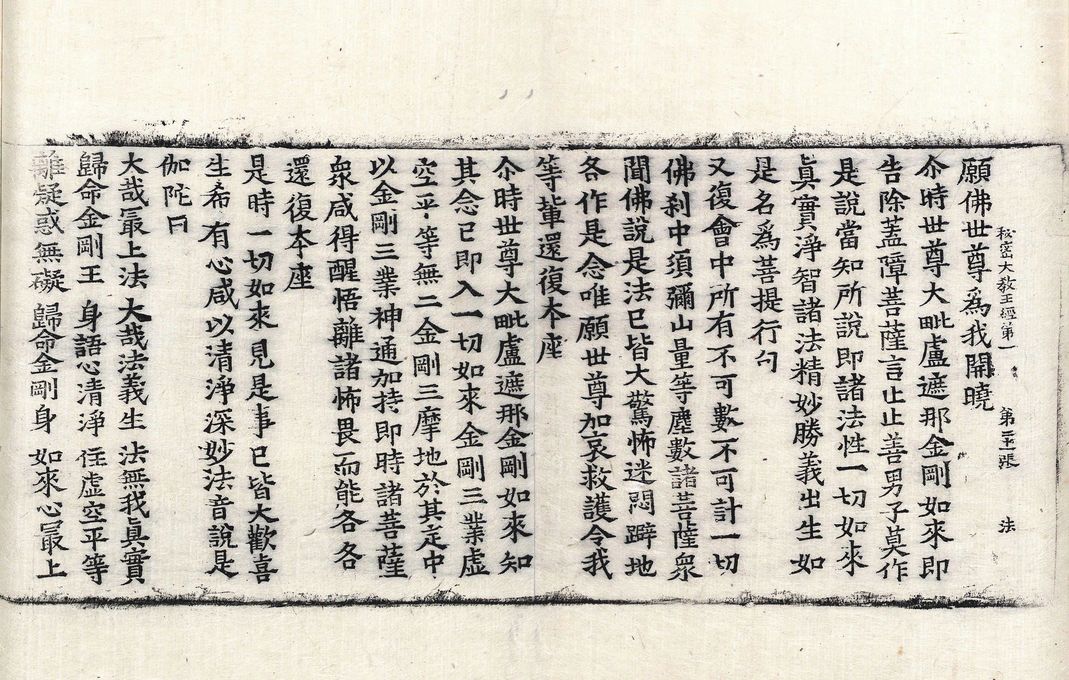 秘密大教王經第一 第二十二張 法
願佛世尊爲我開曉
尒時世尊大毗盧遮那金剛如來即
告除蓋障菩薩言止止善男子莫作
是說當知所說即諸法性一切如來
眞實淨智諸法精妙勝義出生如
是名爲菩提行句
又復會中所有不可數不可計一切
佛刹中須彌山量等塵數諸菩薩衆
聞佛說是法已皆大驚怖迷悶躃地
各作是念唯願世尊加哀救護令我
等輩還復本座
尒時世尊大毗盧遮那金剛如來知
其念已即入一切如來金剛三業虛
空平等無二金剛三摩地於其定中
以金剛三業神通加持即時諸菩薩
衆咸得醒悟離諸怖畏而能各各
還復本座
是時一切如來見是事已皆大歡喜
生希有心咸以清淨深妙法音說是
伽陀曰
大哉最上法 大哉法義生 法無我眞實
歸命金剛王 身語心清淨 住虛空平等
離疑惑無礙 歸命金剛身 如來心最上